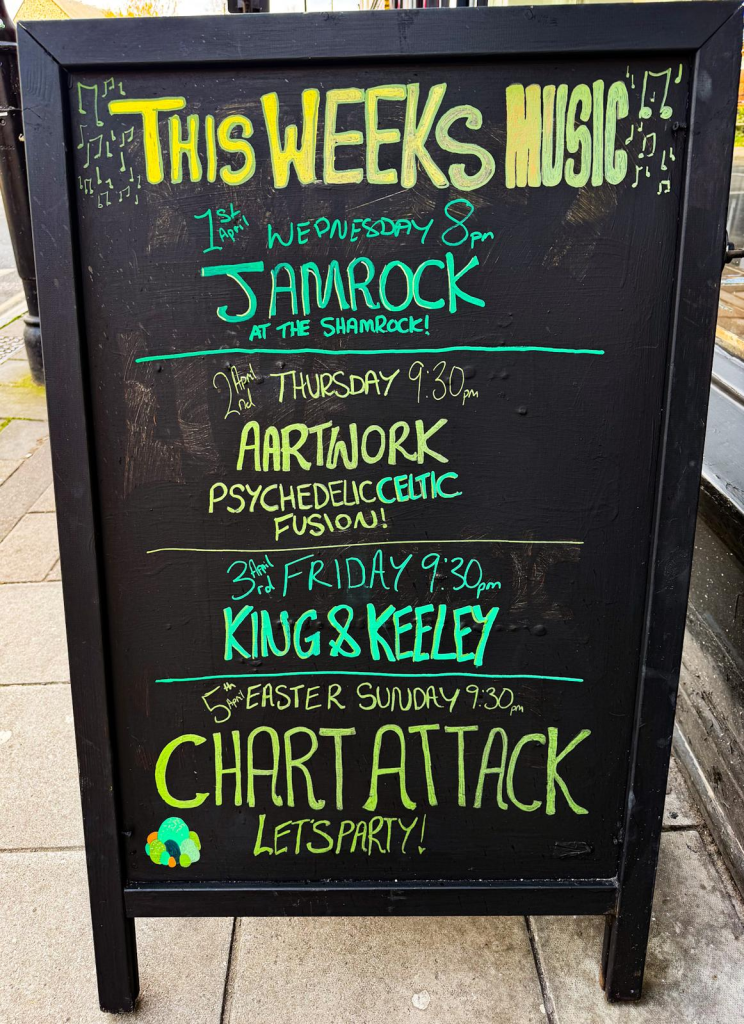 THIS WEEKS MUSIC
1st April WEDNESDAY 8pm
JAMROCK
AT THE SHAMROCK!
2nd April THURSDAY 9:30pm
AARTWORK
PSYCHEDELIC CELTIC
FUSION!
3rd April FRIDAY 9:30pm
KING & KEELEY
5th April EASTER SUNDAY 9:30pm
CHART ATTACK
LET'S PARTY!